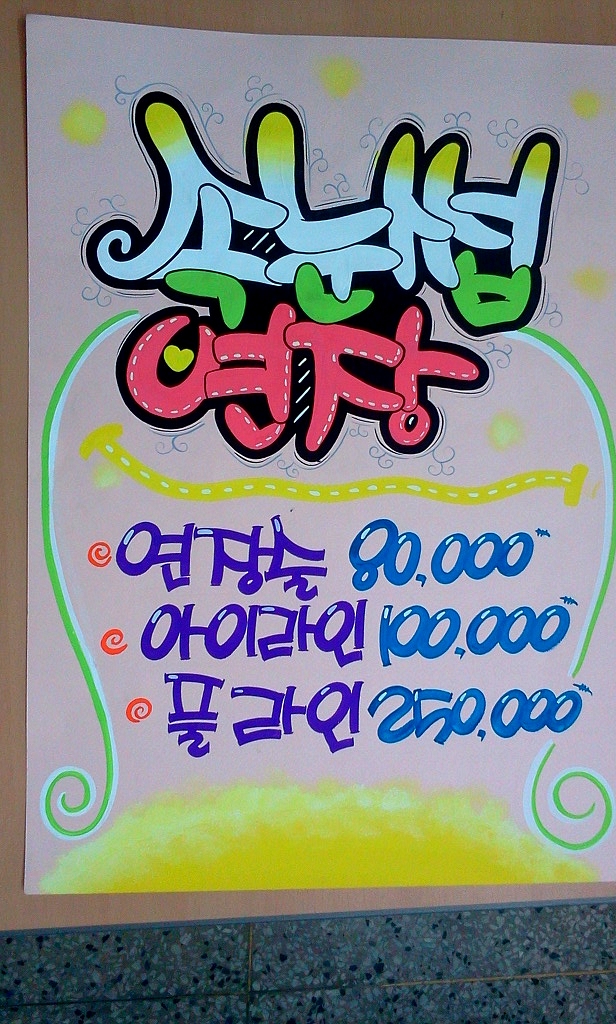 속눈썹
연장
연장술 80,000
아이라인 100,000
풀라인 250,000